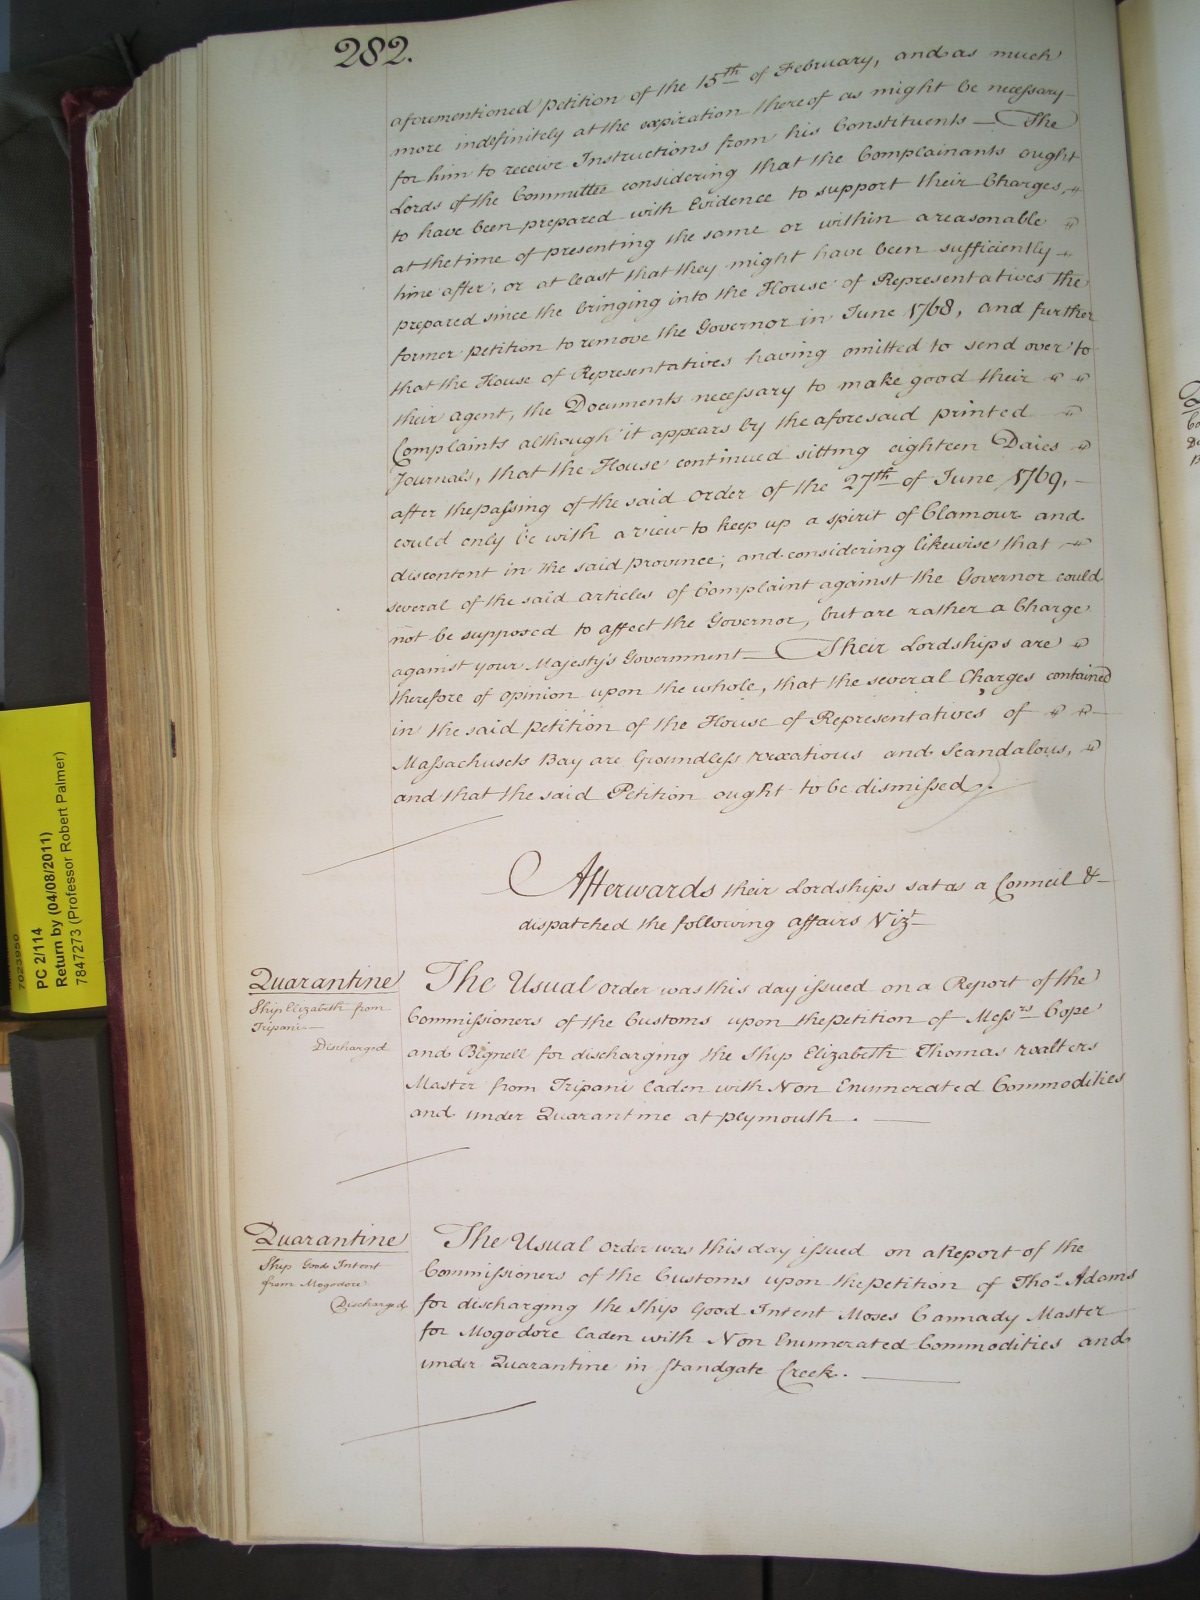 282.
aforementioned Petition of the 15th of February, and as much
more indefinitely at the expiration thereof as might be necessary
for him to receive Instructions from his Constituents — The
Lords of the Committee considering that the Complainants ought
to have been prepared with Evidence to support their Charges,
at the time of presenting the same or within a reasonable
time after, or at least that they might have been sufficiently
prepared since the bringing into the House of Representatives the
former Petition to remove the Governor in June 1768, and further
that the House of Representatives having omitted to send over to
their agent, the Documents necessary to make good their
Complaints although it appears by the aforesaid printed
Journals, that the House continued sitting eighteen Daies
after the passing of the said Order of the 27th of June 1769,
could only be with a view to keep up a spirit of Clamour and
discontent in the said Province; and considering likewise that
several of the said articles of Complaint against the Governor could
not be supposed to affect the Governor, but are rather a Charge
against your Majesty's Government — Their Lordships are
therefore of opinion upon the whole, that the several Charges contained
in the said Petition of the House of Representatives of
Massachusets Bay are Groundless vexatious and Scandalous,
and that the said Petition ought to be dismissed.
Afterwards their Lordships sat as a Council &
dispatched the following affairs Vizt
Quarantine
Ship Elizabeth from
Tripani —
Discharged
The Usual order was this day issued on a Report of the
Commissioners of the Customs upon the petition of Messrs Cope
and Bignell for discharging the Ship Elizabeth Thomas Walters
Master from Tripani Laden with Non Enumerated Commodities
and under Quarantine at Plymouth. —
Quarantine
Ship Good Intent
from Mogodore
Discharged
The Usual order was this day issued on a Report of the
Commissioners of the Customs upon the petition of Thos Adams
for discharging the Ship Good Intent Moses Cannady Master
for Mogodore Laden with Non Enumerated Commodities and
under Quarantine in Standgate Creek. —
7023950
PC 2/114
Return by (04/08/2011)
7847273 (Professor Robert Palmer)